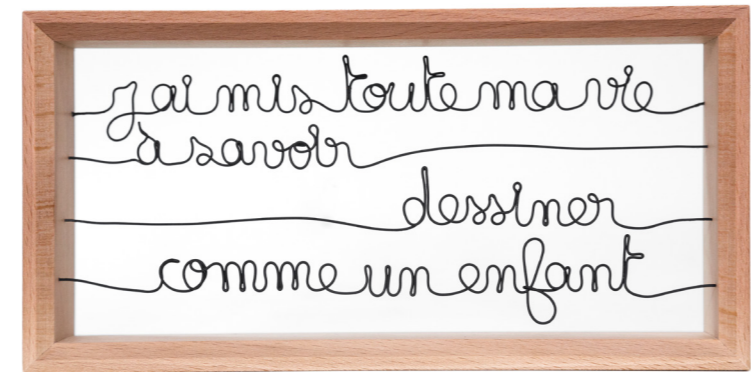 j'ai mis toute ma vie
à savoir
dessiner
comme un enfant